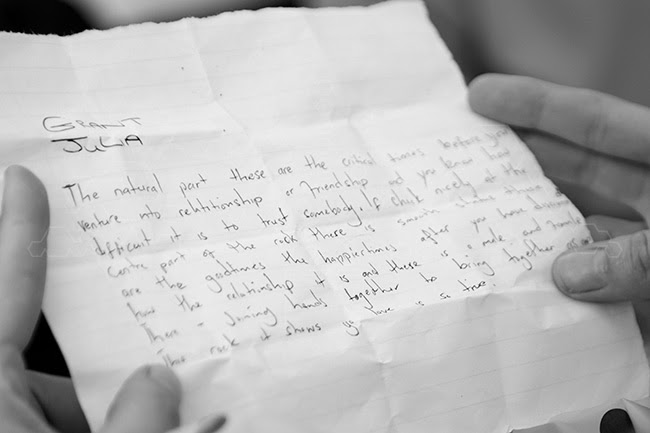 GRANT
JULIA
The natural part these are the critical times before your
venture into relntitionship or friendship and you know how
difficant it is to trust somebody, if click nicely at the
Centre part of the rock there is smooth shows these
are the goodtimes the happiestimes after you have
how the relationship it is and there is a male and
There - Joining hands together to bring together as
This rock it shows yo love is so true.